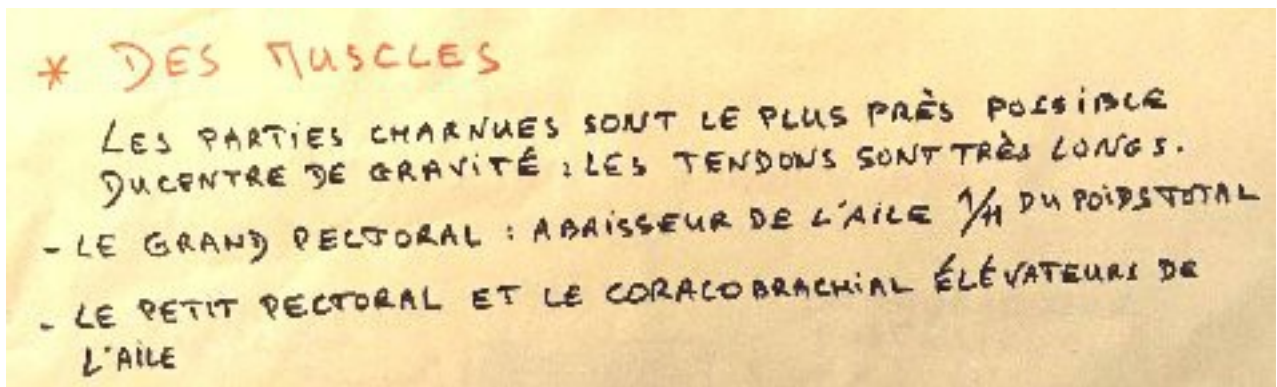 * DES MUSCLES
LES PARTIES CHARNUES SONT LE PLUS PRÈS POSSIBLE
DU CENTRE DE GRAVITÉ : LES TENDONS SONT TRÈS LONGS.
- LE GRAND PECTORAL : ABAISSEUR DE L'AILE DU POIDS TOTAL
- LE PETIT PECTORAL ET LE CORACOBRACHIAL ÉLÉVATEURS DE
L'AILE